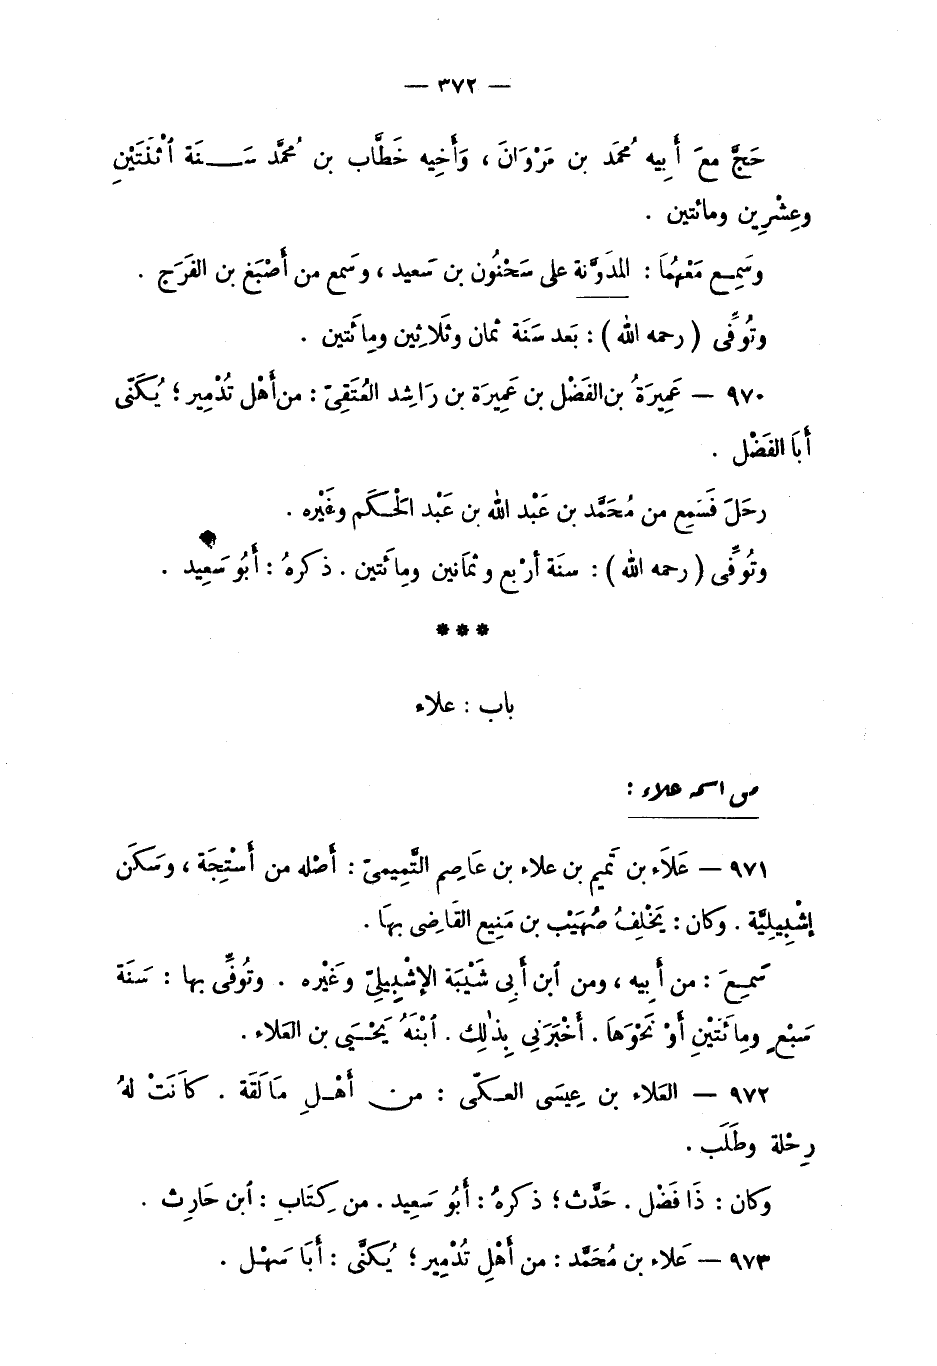 — ٣٧٢ —
حَجَّ معَ أَبِيه مُحمَد بن مَرْوَانَ ، وَأَخِيه خَطَّاب بن مُحمَّد سَـــنَة ٱثْنَتَيْنِ
وعِشْرِين ومائتين .
وسَمِـع مَعْهُمَا : المدَوَّنة على سَحْنُون بن سَعيد ، وسَمع من أَصْبَغ بن الفَرَج .
وتُوفِّى ( رحمه الله ) : بَعد سَنَة ثمان وثَلاثِين ومِائَتين .
٩٧٠ — عَمِيرَةُ بن الفَضْل بن عَمِيرَة بن رَاشِد العُتَقِىّ : من أَهْل تُدْمِير ؛ يُكَنَّى
أَبَا الفَضْل .
رحَلَ فَسَمِع من مُحَمَّد بن عَبْد الله بن عَبْد الحْـكَم وغَيْره .
وتُوفِّى ( رحمه الله ) : سنَة أرْبع وثمَانين ومِائَتين . ذكرهُ : أَبُو سَعِيد .
***
باب : علاء
من اسمه علاء :
٩٧١ — عَلاَء بن تَميم بن علاء بن عَاصِم التَّمِيمىّ : أَصْله من أَسْتِجَة ، وسَكَن
إشْبِيلِيَّة . وكان : يَخْلِفُ صُهَيْب بن مَنِيع القَاضِى بهَا .
سَمِـعَ : من أَبِيه ، ومن ٱبن أَبِى شَيْبَة الإشْبِيلِىّ وغَيْره . وتُوفِّى بها : سَنَة
سَبْعٍ ومِائَتَيْنِ أَوْ نَحْوَهَا . أَخْبَرَنِي بِذٰلِك . ٱبْنَهُ يَحْـيَى بن العَلاء .
٩٧٢ — العَلاء بن عِيسَى العـكّى : من أَهْـلِ مَالَقَة . كَانَتْ لهُ
رِحْلة وطَلَب .
وكان : ذَا فَضْل . حَدَّث ؛ ذكرهُ : أَبُو سَعيد . من كِتَابِ : ٱبن حَارِث .
٩٧٣ — عَلاء بن مُحَمَّد : من أَهْلِ تُدْمِير ؛ يُكنَّى : أَبَا سَهْل .